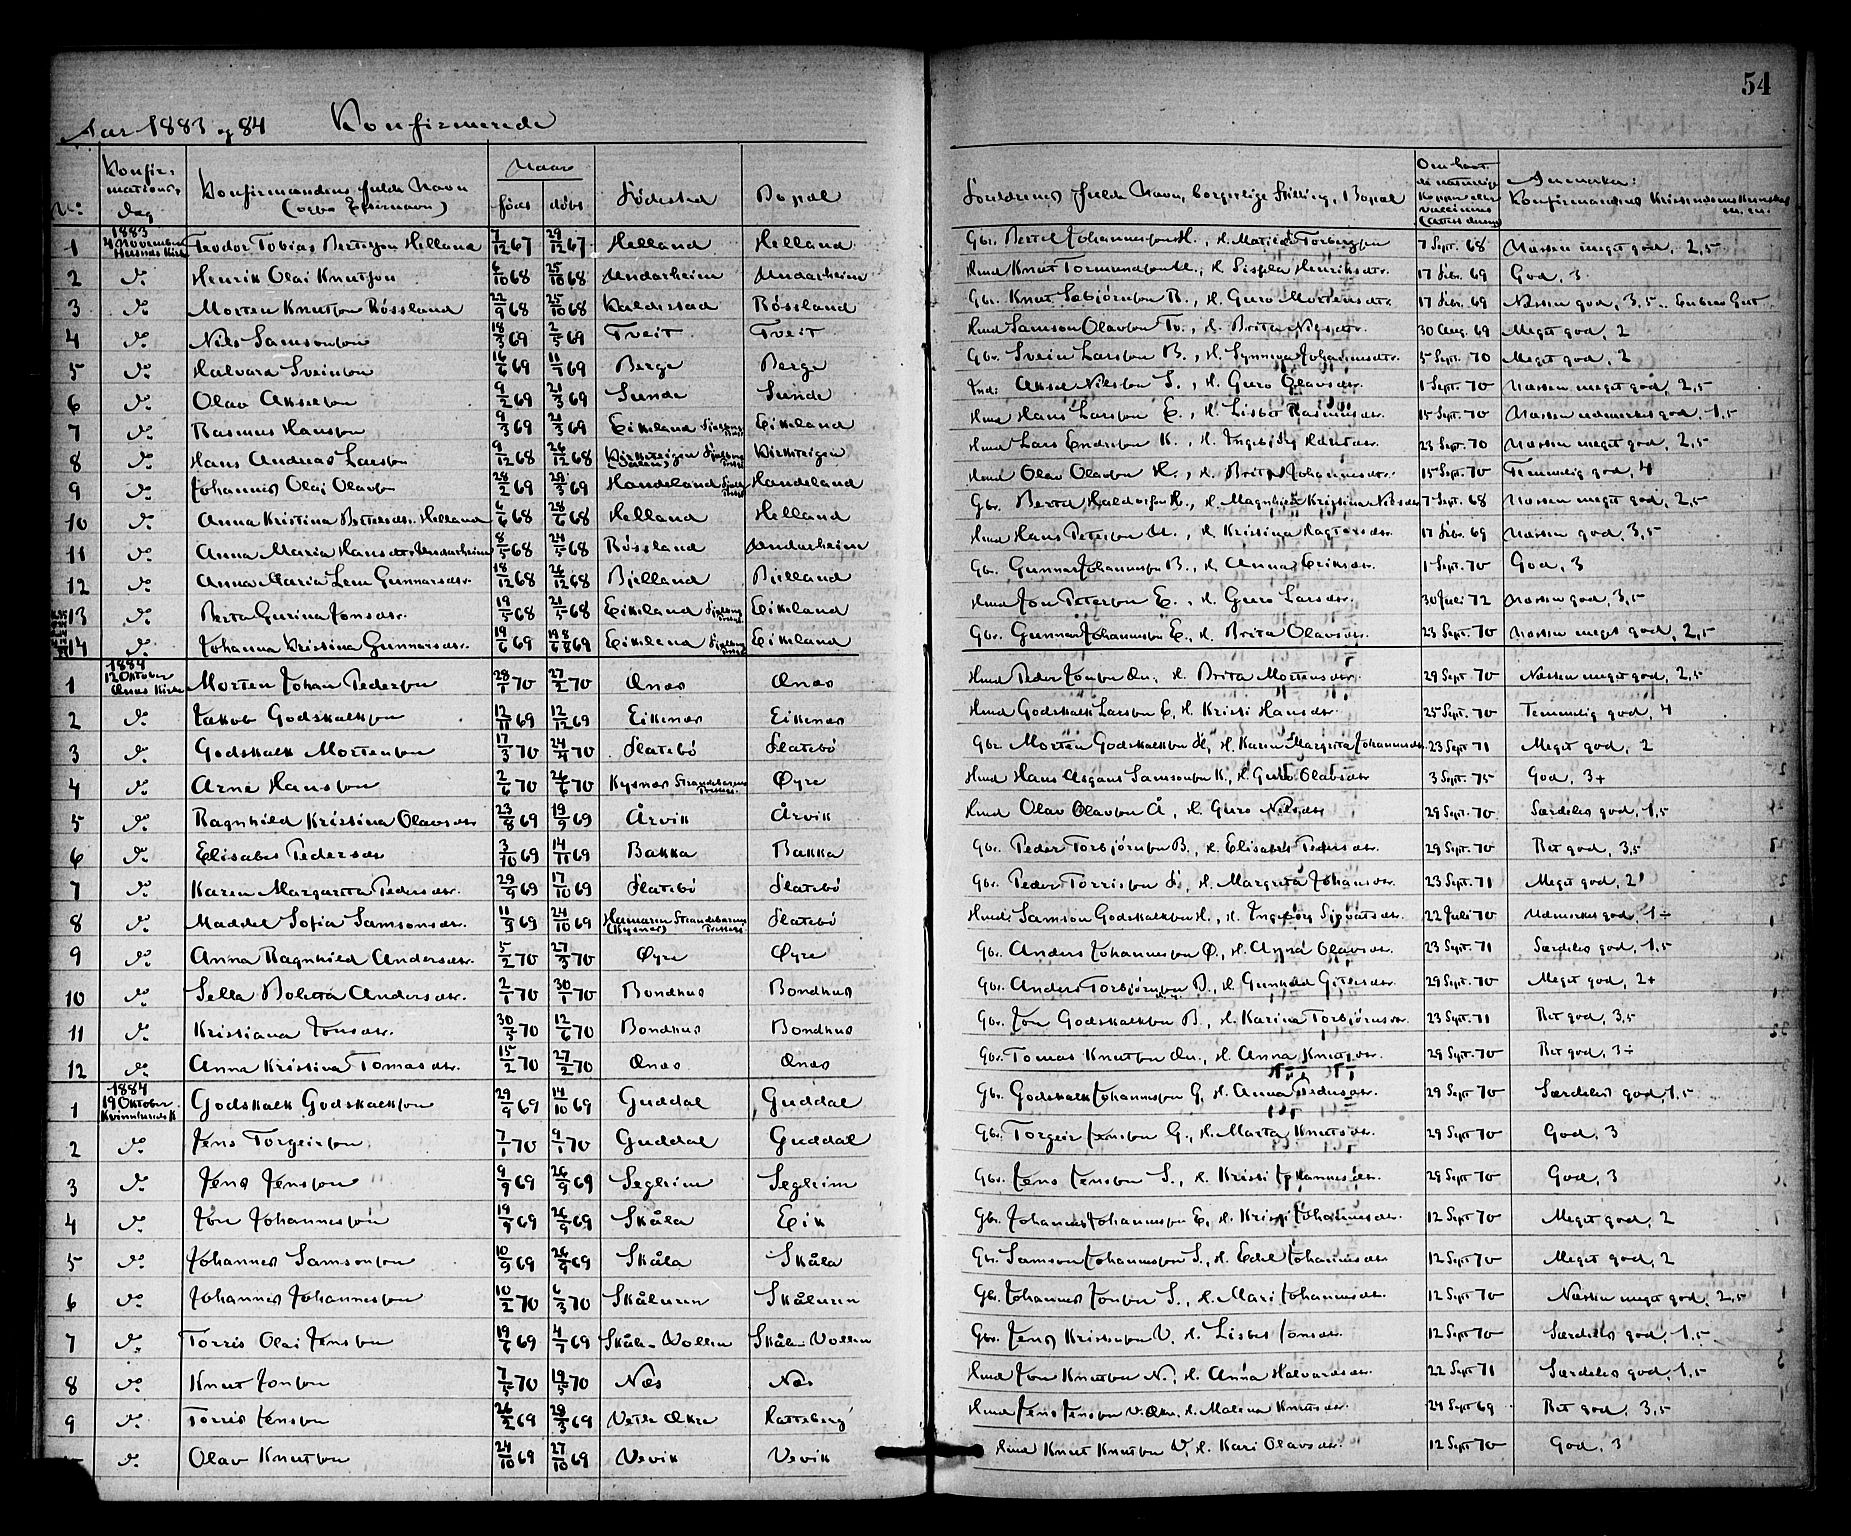 54
Aar 1883 og 84 Konfirmerede
No. Konfirmations-Dag Konfirmandens fulde Navn (ogsaa Efternavn) Naar født døbt Fødested Bopæl Forældrenes fulde Navn, borgerlige Stilling, Bopæl Anmerkn:
1 1883 4 November Husnes Kirke Teodor Tobias Bertelson Helland 7/12 67 29/12 67 Helland Helland Gbr. Bertel Johannesson H., H. 7 Sept. 68 Næsten meget god, 2,5
2 do Henrik Olai Knutson 6/10 68 25/10 68 Undarheim Undarheim Hmd Knut Tormundson U., H. Sissela Henriksdtr. 17 Febr. 69 God, 3
3 do Morten Knutson Røssland 22/9 68 25/10 68 Valderstad Røssland Gbr. Knut Sæbjørnson R., H. Guro Mortensdtr. 17 Febr. 69 Næsten god, 3,5
4 do Nils Samsonson 18/3 69 2/5 69 Tveit Tveit Hmd Samson Olavson Tv., H. Brita Nilsdtr. 30 Aug. 69 Meget god, 2
5 do Halvard Sveinson 16/6 69 11/7 69 Berge Berge Gbr. Svein Larsson B., H. Synneva Johannesdtr. 5 Sept. 70 Meget god, 2
6 do Olav Akselson 9/2 69 21/3 69 Sunde Sunde Ind: Aksel Nilsson S., H. Guro Olavsdtr. 1 Sept. 70 Næsten meget god, 2,5
7 do Rasmus Hansson 9/3 69 21/3 69 Eikeland Eikeland Hmd Hans Larsson E., H. Lisbet Rasmusdtr. 15 Sept. 70 Næsten udmerket god, 1,5
8 do Hans Andreas Larsson 9/12 68 26/12 68 Virksteigen Virksteigen Hmd Lars Endreson K., H. Ingebjørg 23 Sept. 70 Næsten meget god, 2,5
9 do Johannes Olai Olavson 28/2 69 29/3 69 Handeland Handeland Hmd Olav Olavson H., H. Brita Johannesdtr. 15 Sept. 70 Temmelig god, 4
10 do Anna Kristina Bertelsdtr. Helland 6/6 68 28/6 68 Helland Helland Gbr. Bertel Haldorson H., H. Magnhild Kristina Nilsdtr 7 Sept. 68 Næsten meget god, 2,5
11 do Anna Maria Hansdtr Undarheim 8/5 68 24/5 68 Røssland Undarheim Hmd Hans Peterson U., H. Kristina 17 Febr. 69 Næsten god, 3,5
12 do Anna Maria Lem Gunnarsdtr. 18/12 68 26/12 68 Bjelland Bjelland Gbr. Gunnar Johannesson B., H. Anna Eriksdtr. 1 Sept. 70 God, 3
13 do Berta Gurina Jonsdtr. 19/5 68 21/5 68 Eikeland Eikeland Hmd Jon Peterson E., H. Guro Larsdtr. 30 Juli 72 Næsten god, 3,5
14 do Johanna Kristina Gunnarsdtr. 19/6 69 69 Eikeland Eikeland Gbr. Gunnar Johannesson E., H. Brita Olavsdtr. 23 Sept. 70 Næsten meget god, 2,5
1 1884 12 Oktober Ænes Kirke Morten Johan Pederson 28/1 70 27/2 70 Ænes Ænes Hmd Peder Jonson Æn., H. Brita Mortensdtr. 29 Sept. 70 Næsten meget god, 2,5
2 do Jakob Godskalkson 12/11 69 12/12 69 Eikenes Eikenes Hmd Godskalk Larsson E., H. Kristi Hansdtr. 25 Sept. 70 Temmelig god, 4
3 do Godskalk Mortenson 17/3 70 24/4 70 Flatebø Flatebø Gbr. Morten Godskalkson Fl., H. Karen Margreta Johannesdtr. 23 Sept. 71 Meget god, 2
4 do Arne Hansson 2/6 70 26/6 70 Kysnes Strandebarms Præstegj. Øyre Hmd Hans Asgaut Samsonson K., H. Guro Olavsdtr 3 Sept. 75 God, 3+
5 do Ragnhild Kristina Olavsdtr 23/8 69 19/9 69 Årvik Årvik Hmd Olav Olavson Å, H. Guro Nilsdtr 29 Sept. 70 Særdeles god, 1,5
6 do Elisabet Pedersdtr 3/10 69 14/11 69 Bakka Bakka Gbr. Peder Torbjørnson B., H. Elisabet Pedersdtr. 29 Sept. 70 Ret god, 3,5
7 do Karen Margreta Pedersdtr. 29/9 69 17/10 69 Flatebø Flatebø Gbr. Peder Torrisson Fl., H. Margreta Johansdtr. 23 Sept. 71 Meget god, 2
8 do Maddel Sofia Samsonsdtr. 11/9 69 24/10 69 Heimaren Strandebarms (Kysnes) Præstegj. Flatebø Hmd: Samson Godskalkson H., H. Ingebjørg Sjovatsdtr. 22 Juli 70 Udmerket god, 1÷
9 do Anna Ragnhild Andersdtr. 5/2 70 27/3 70 Øyre Øyre Gbr. Anders Johannesson Ø., H. Anna Olavsdtr. 23 Sept. 71 Særdeles god, 1,5
10 do Sella Boletta Andersdtr. 2/1 70 30/1 70 Bondhus Bondhus Gbr. Anders Torbjørnson B., H. Gunhild 29 Sept. 70 Meget god, 2+
11 do Kristiana Jonsdtr. 30/5 70 12/6 70 Bondhus Bondhus Gbr. Jon Godskalkson B., H. Karina Torbjørnsdtr. 23 Sept. 71 Ret god, 3,5
12 do Anna Kristina Tomasdtr. 15/2 70 27/2 70 Ænes Ænes Gbr. Tomas Knutson Æn., H. Anna Knutsdtr. 29 Sept. 70 Ret god, 3÷
1 1884 19 Oktober Kvinnherads K Godskalk Godskalkson 29/9 69 14/10 69 Guddal Guddal Gbr. Godskalk Johannesson G., H. Anna Pedersdtr. 29 Sept. 70 Særdeles god, 1,5
2 do Jens Torgeirson 7/1 70 9/1 70 Guddal Guddal Gbr. Torgeir Jensson G., H. Marta Knutsdtr. 29 Sept 70 God, 3
3 do Jens Jensson 9/9 69 26/9 69 Segleim Segleim Gbr. Jens Jensson S., H. Kristi Johannesdtr. 29 Sept 70 God, 3
4 do Jon Johannesson 19/9 69 26/9 69 Skåla Eik Gbr. Johannes Johannesson E., H. Kristi Johannesdtr. 12 Sept 70 Meget god, 2
5 do Johannes Samsonson 10/9 69 26/9 69 Skåla Skåla Gbr. Samson Johannesson S., H. Edel Johannesdtr. 12 Sept 70 Meget god, 2
6 do Johannes Johannesson 10/2 70 6/3 70 Skåluren Skåluren Gbr. Johannes Jonson S., H. Mari Johannesdtr. 12 Sept 70 Næsten meget god, 2,5
7 do Torris Olai Jensson 19/6 69 4/7 69 Skåla-Vollen Skåla-Vollen Gbr. Jens Kristenson V. H. Lisbet Jonsdtr. 12 Sept 70 Særdeles god, 1,5
8 do Knut Jonson 7/5 70 19/5 70 Nes Nes Hmd Jon Knutson N., H. Anna Halvardsdtr. 22 Sept 71 Særdeles god, 1,5
9 do Torris Jensson 26/2 69 29/3 69 Vetle Økre Hatteberg Hmd Jens Jensson V. Økr., H. Malena Knutsdtr. 24 Sept 69 Ret god, 3,5
do Olav Knutson 24/10 69 27/10 69 Nevik Nevik Hmd Knut Knutson N., H. Kari Olavsdtr. 12 Sept 70 God, 3